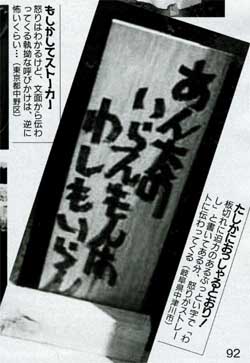 たしかにおっしゃるとおり!
板切れに迫力のあるぶっとい字で「わ
し」と書いてある分、怒りがストレー
トに伝わってくる(岐阜県中津川市)
あんたの
いらんもんは
わしもいらん
もしかしてストーカー
怒りはわかるけど、文面から伝わ
ってくる執拗な呼びかけは、逆に
怖いくらい…(東京都中野区)
92